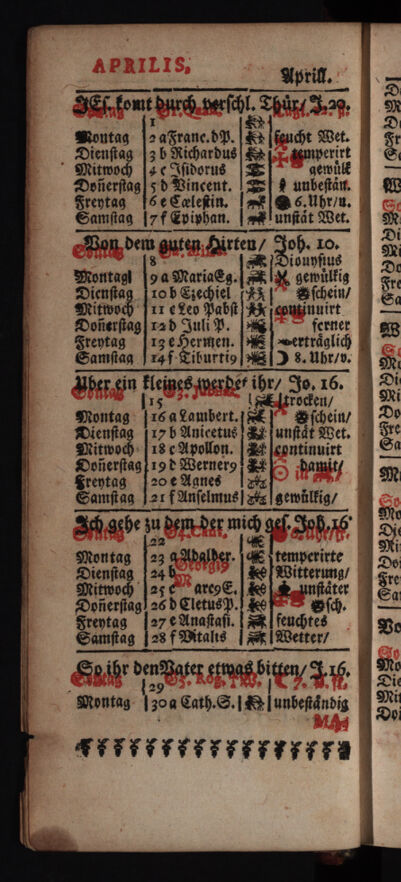 APRILIS.
Aprill.
JEs. komt durch verschl. Thür/ J. 20.
Sontag
1
Montag 2 a Franc. d P. feucht Wet.
Dienstag 3 b Richardus temperirt
Mitwoch 4 c Isidorus gewülk
Donerstag 5 d Vincent. unbestän.
Freytag 6 e Cælestin. 6. Uhr/ n.
Samstag 7 f Epiphan. unstät Wet.
Von dem guten Hirten/ Joh. 10.
Sontag
8 Dionysius
Montagl 9 a Maria Eg. gewülkig
Dienstag 10 b Ezechiel schein/
Mitwoch 11 c Leo Pabst continuirt
Donerstag 12 d Juli P. ferner
Freytag 13 e Hermen. erträglich
Samstag 14 f Tiburti9 8. Uhr/ v.
Uber ein kleines werdet ihr/ Jo. 16.
Sontag
15 trocken/
Montag 16 a Lambert. schein/
Dienstag 17 b Anicetus unstät Wet.
Mitwoch 18 c Apollon. continuirt
Donerstag 19 d Werner9 damit/
Freytag 20 e Agnes
Samstag 21 f Anselmus gewülkig/
Ich gehe zu dem der mich ges. Joh. 16
Sontag G4. Cant.
22
Montag 23 a Adalber. temperirte
Georgi9
Dienstag 24 b Witterung/
Mitwoch 25 c Marc9 E. unstäter
Donerstag 26 d Cletus P. sch.
Freytag 27 e Anastasi. feuchtes
Samstag 28 f Vitalis Wetter/
So ihr den Vater etwas bitten/ J. 16.
Sontag G5. Rog.
29
Montag 30 a Cath. S. unbeständig
MA-